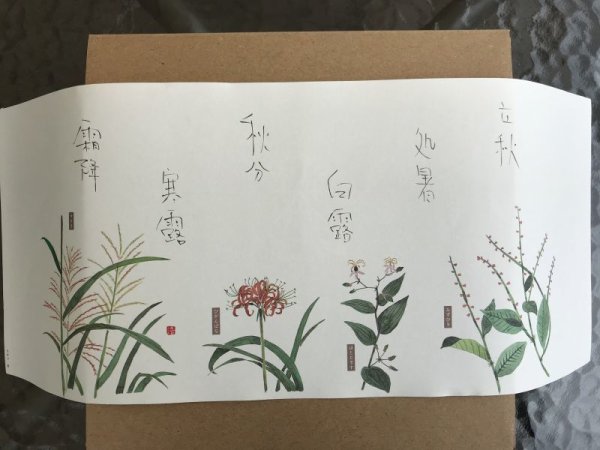 立秋
処暑
白露
秋分
寒露
霜降